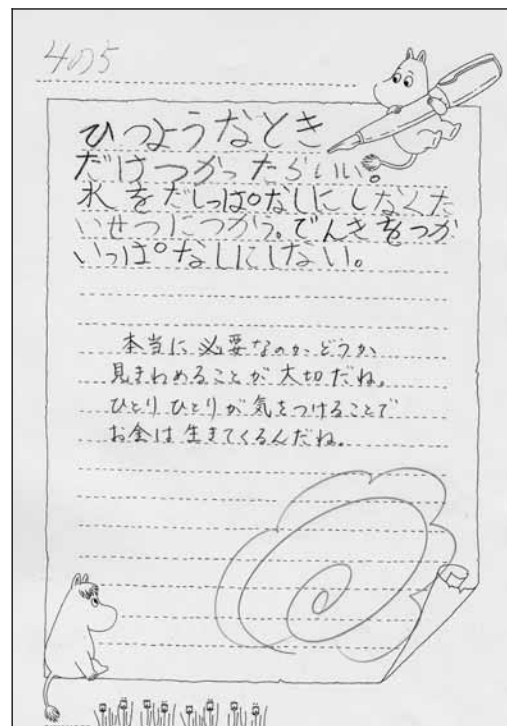 4の5
ひつようなとき
だけつかったらいい。
水をだしっぱなしにしなくた
いせつにつかう。でんきをつか
いっぱなしにしない。
本当に必要なのかどうか
見きわめることが大切だね。
ひとりひとりが気をつけることで
お金は生きてくるんだね。